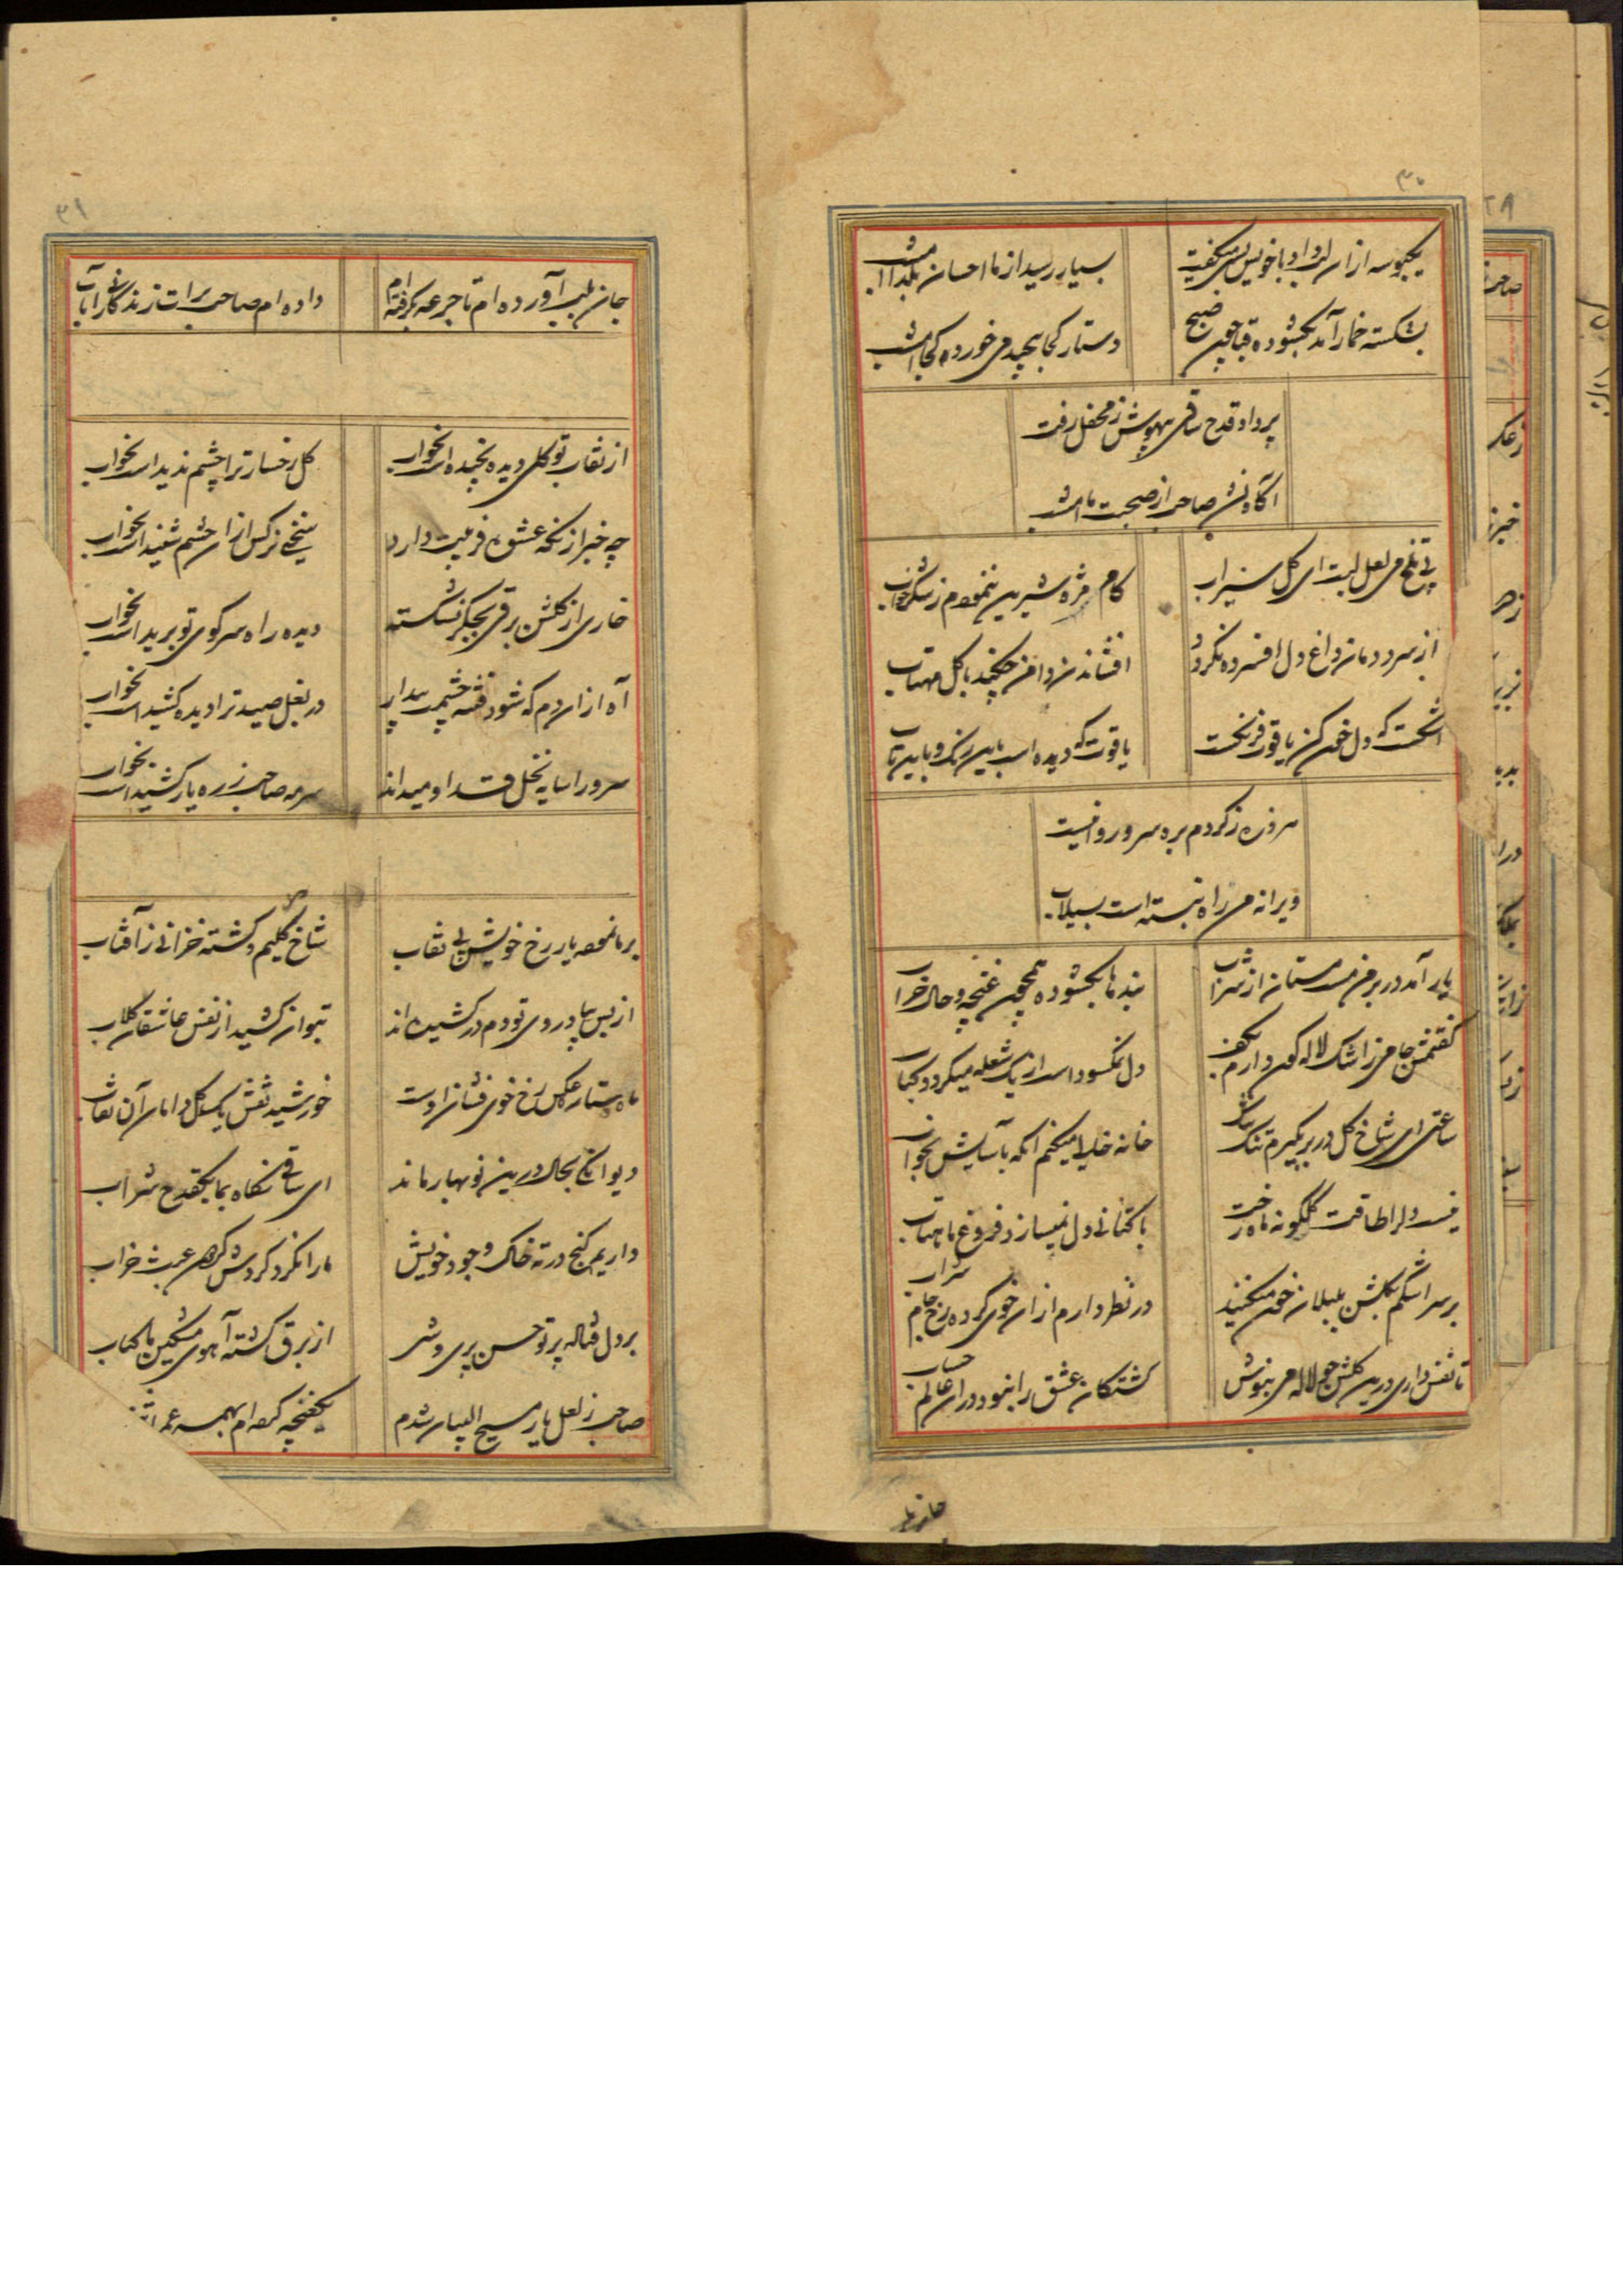 ۳۰
یکبوسه از ان لب داد و با خویش میگفت
بسیار رسید از ما احسان بگدا امشب
بشکسته خمار آمد بگشوده قبا چون صبح
دستار کجا پیچید می خورده کجا امشب
پر داد قدح ساقی بیهوش ز محفل رفت
آگاه نشد صاحب از صحبت ما امشب
بی تلخ می لعل لبت ای گل سیراب
کام مژه شیرین ننمودم ز شکرخواب
از سرد دمان داغ دل افسرده نگردد
افشاندن دامن چکند با گل مهتاب
اشکست که دل خون کن یاقوت فرنگست
یاقوت که دیده است باین رنگ و باین تاب
ویرانه من راه نبسته است بسیلاب
یار آمد در بر من مست مستان از شراب
بند ما بگشوده همچون غنچه و حال خراب
گفتمش جامی ز اشک لاله گون دارم بکف
دل نمکسود است از یک شعله میگردد کباب
ساعتی ای شاخ گل در بر بگیرم تنگ تنگ
خانه خالی میکنم انکه بآسایش بخواب
با کتانی دل نمیسازد فروغ ماهتاب
بر سر اشکم بگلشن بلبلان خون میکنند
در نظر دارم از ان خوی کرده رخ جام شراب
تا نفس داری درین گلشن چو لاله می بنوش
کشتگان عشق را نبود در ان عالم حساب
جان بلب
۳۱
جان بلب آورده ام تا جرعه بگرفته ام
داده ام صاحب برات زندگانی را بآب
از نقاب تو گلی دیده نچیده است بخواب
گل رخسار ترا چشم ندیده است بخواب
چه خبر از نگه عشوه فریبت دارد
سخنی نرگس از ان چشم شنیده است بخواب
خاری از گلشن برقی بجگر نشکسته
دیده راه سر کوی تو بریده است بخواب
آه از ان دم که شود فتنه چشمت بیدار
در بغل صید ترا دیده کشیده است بخواب
سرو را سایه نخل قد او میداند
سرمه صاحب ز ره یار کشیده است بخواب
بر ما نمود یار رخ خویش بی نقاب
شاخ گلیم و کشته خزانی ز آفتاب
از بس بیاد روی تو دم در کشیده اند
بتوان کشید از نفس عاشقان گلاب
ماه ستاره عکس رخ خوی فشان اوست
خورشید نقش یک گل دامان آن نقاب
دیوانگی بحال درین نوبهار ماند
ای ساقی نگاه بما یکقدح شراب
داریم گنج در ته خاک وجود خویش
ما را نکرد گردش گردون عبث خراب
بر دل فتاله پرتو حسن پری وشی
از برق کشته آهوی مشکین ما کباب
صاحب ز لعل یار مسیح البیان شدم